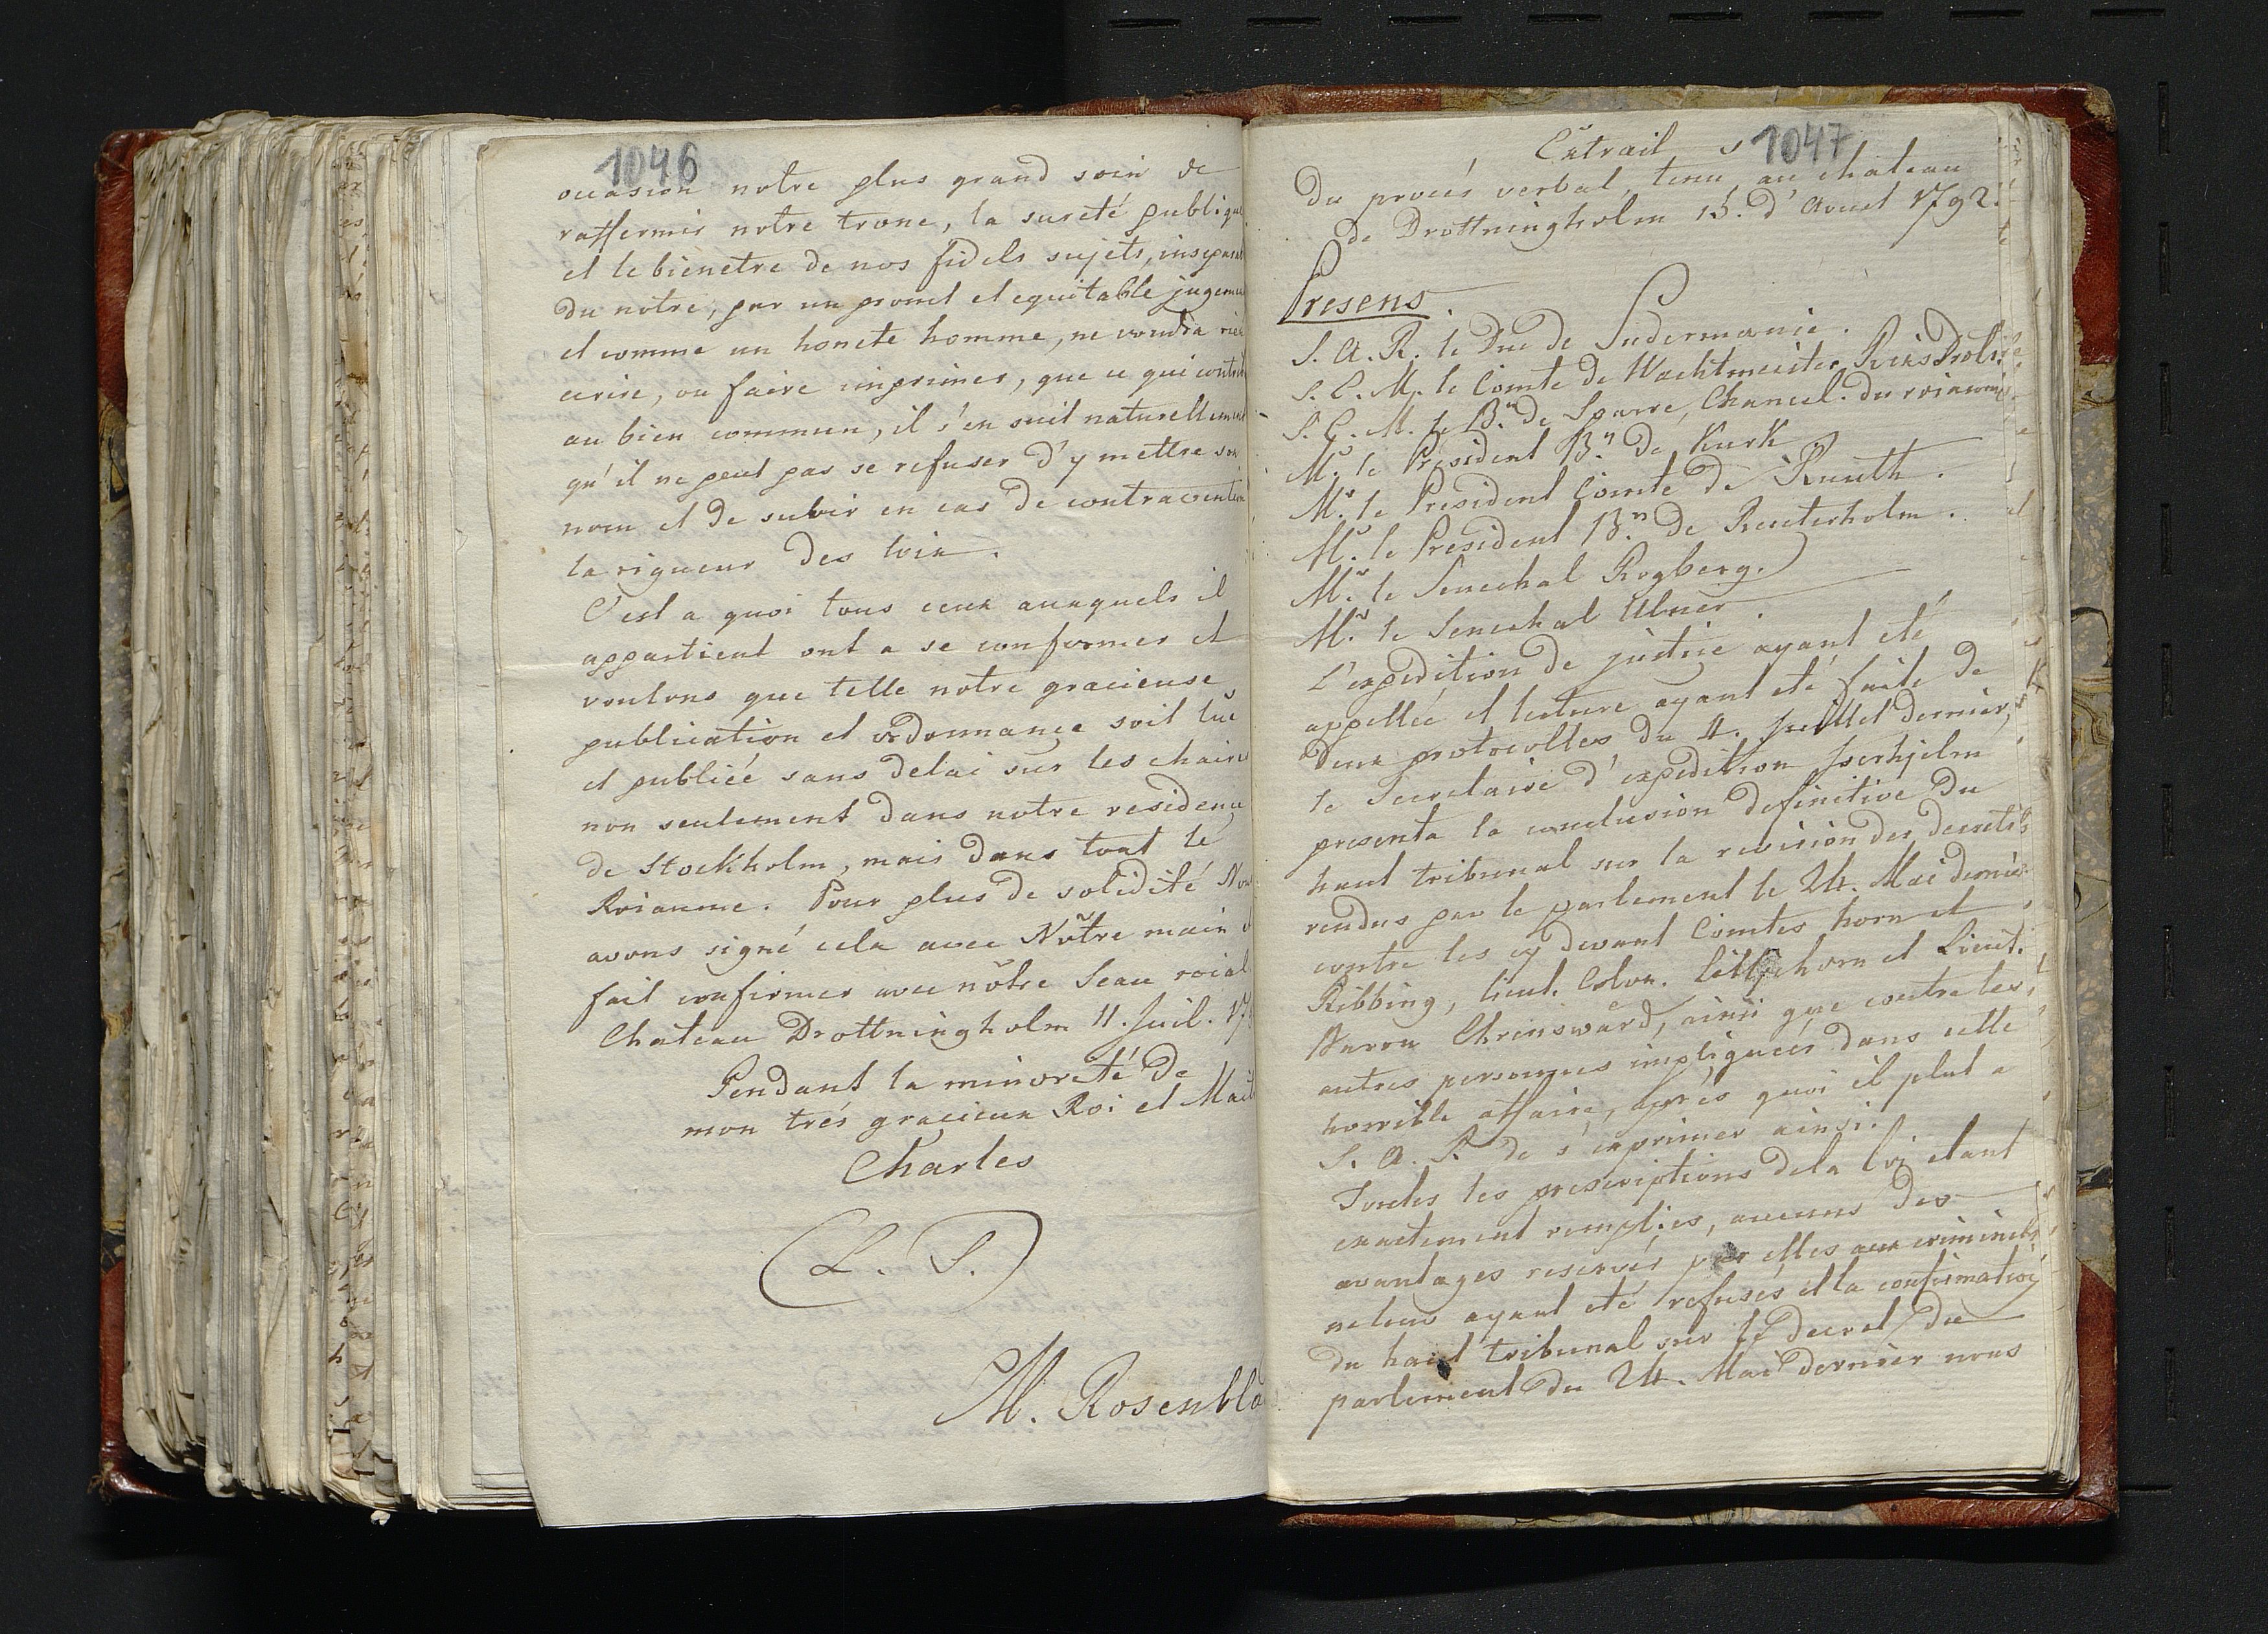 1046
occasion notre plus grand soin de
raffermir notre trone, la sureté publique
et le bienetre de nos fidels sujets, insepara
du notre, par un promt et equitable jugeme
et comme un honete homme, ne voudra rien
ecrire, ou faire imprimer, que ce qui contrib
au bien commun, il s'en suit naturellement
qu'il ne peut pas se refuser d'y mettre son
nom et de subir en cas de contravention
la rigueur des loix.
C'est a quoi tous ceux auxquels il
appartient ont a se conformer et
voulons que telle notre gracieuse
publication et ordonnance soit lue
et publiée sans delai sur les chaires
non seulement dans notre residence
de Stockholm, mais dans tout le
Roiaume. Pour plus de solidité Nous
avons signé cela avec Nôtre main et
fait confirmer avec nôtre Seau roial
Chateau Drottningholm 11. Juil. 17
Pendant la minorité de
mon trés gracieux Roi et Mait
Charles
(L. S.)
M. Rosenbla
1047
Extrait
du procés verbal, tenu au chateau
de Drottningholm 15. d'Avout 1792.
Presens
S. A. R. le Duc de Sudermanie.
S. E. M. le Comte de Wachtmeister Riks Drots.
S. E. M. le Bn. de Sparre, Chancel. du roiaume
Mr. le President Bn. de Kurk
Mr. le President Comte de Ruuth.
Mr. le President Bn. de Reuterholm.
Mr. le Senechal Rogberg.
Mr. le Senechal Ulner.
L'expedition de justice ayant eté
appellée et lecture ayant eté faite de
deux protocolles du 4. Juillet dernier,
le Secretaire d'expedition Iserhjelm
presenta la conclusion definitive du
haut tribunal sur la revision des decrets
rendus par le parlement le 24. Mai dernier
contre les cy devant Comtes horn et
Ribbing, lieut. Colon. Lilljehorn et Lieut.
Baron Ehrensward, ainsi que contre les
autres personnes impliquées dans cette
horrible affaire, aprés quoi il plut a
S. A. R. de s'exprimer ainsi.
Toutes les prescriptions de la loi etant
exactement remplies, aucuns des
avantages reservés par elles aux criminels
ne leur ayant eté refusés et la confirmation
du haut tribunal sur le decret du
parlement du 24. Mai dernier nous